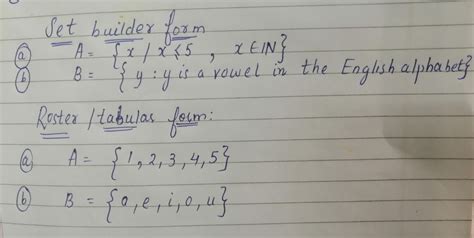 Set builder form
(a) A = {x / x ≤ 5 , x ∈ IN}
(b) B = {y : y is a vowel in the English alphabet}
Roster / tabulas form:
(a) A = {1, 2, 3, 4, 5}
(b) B = {a, e, i, o, u}